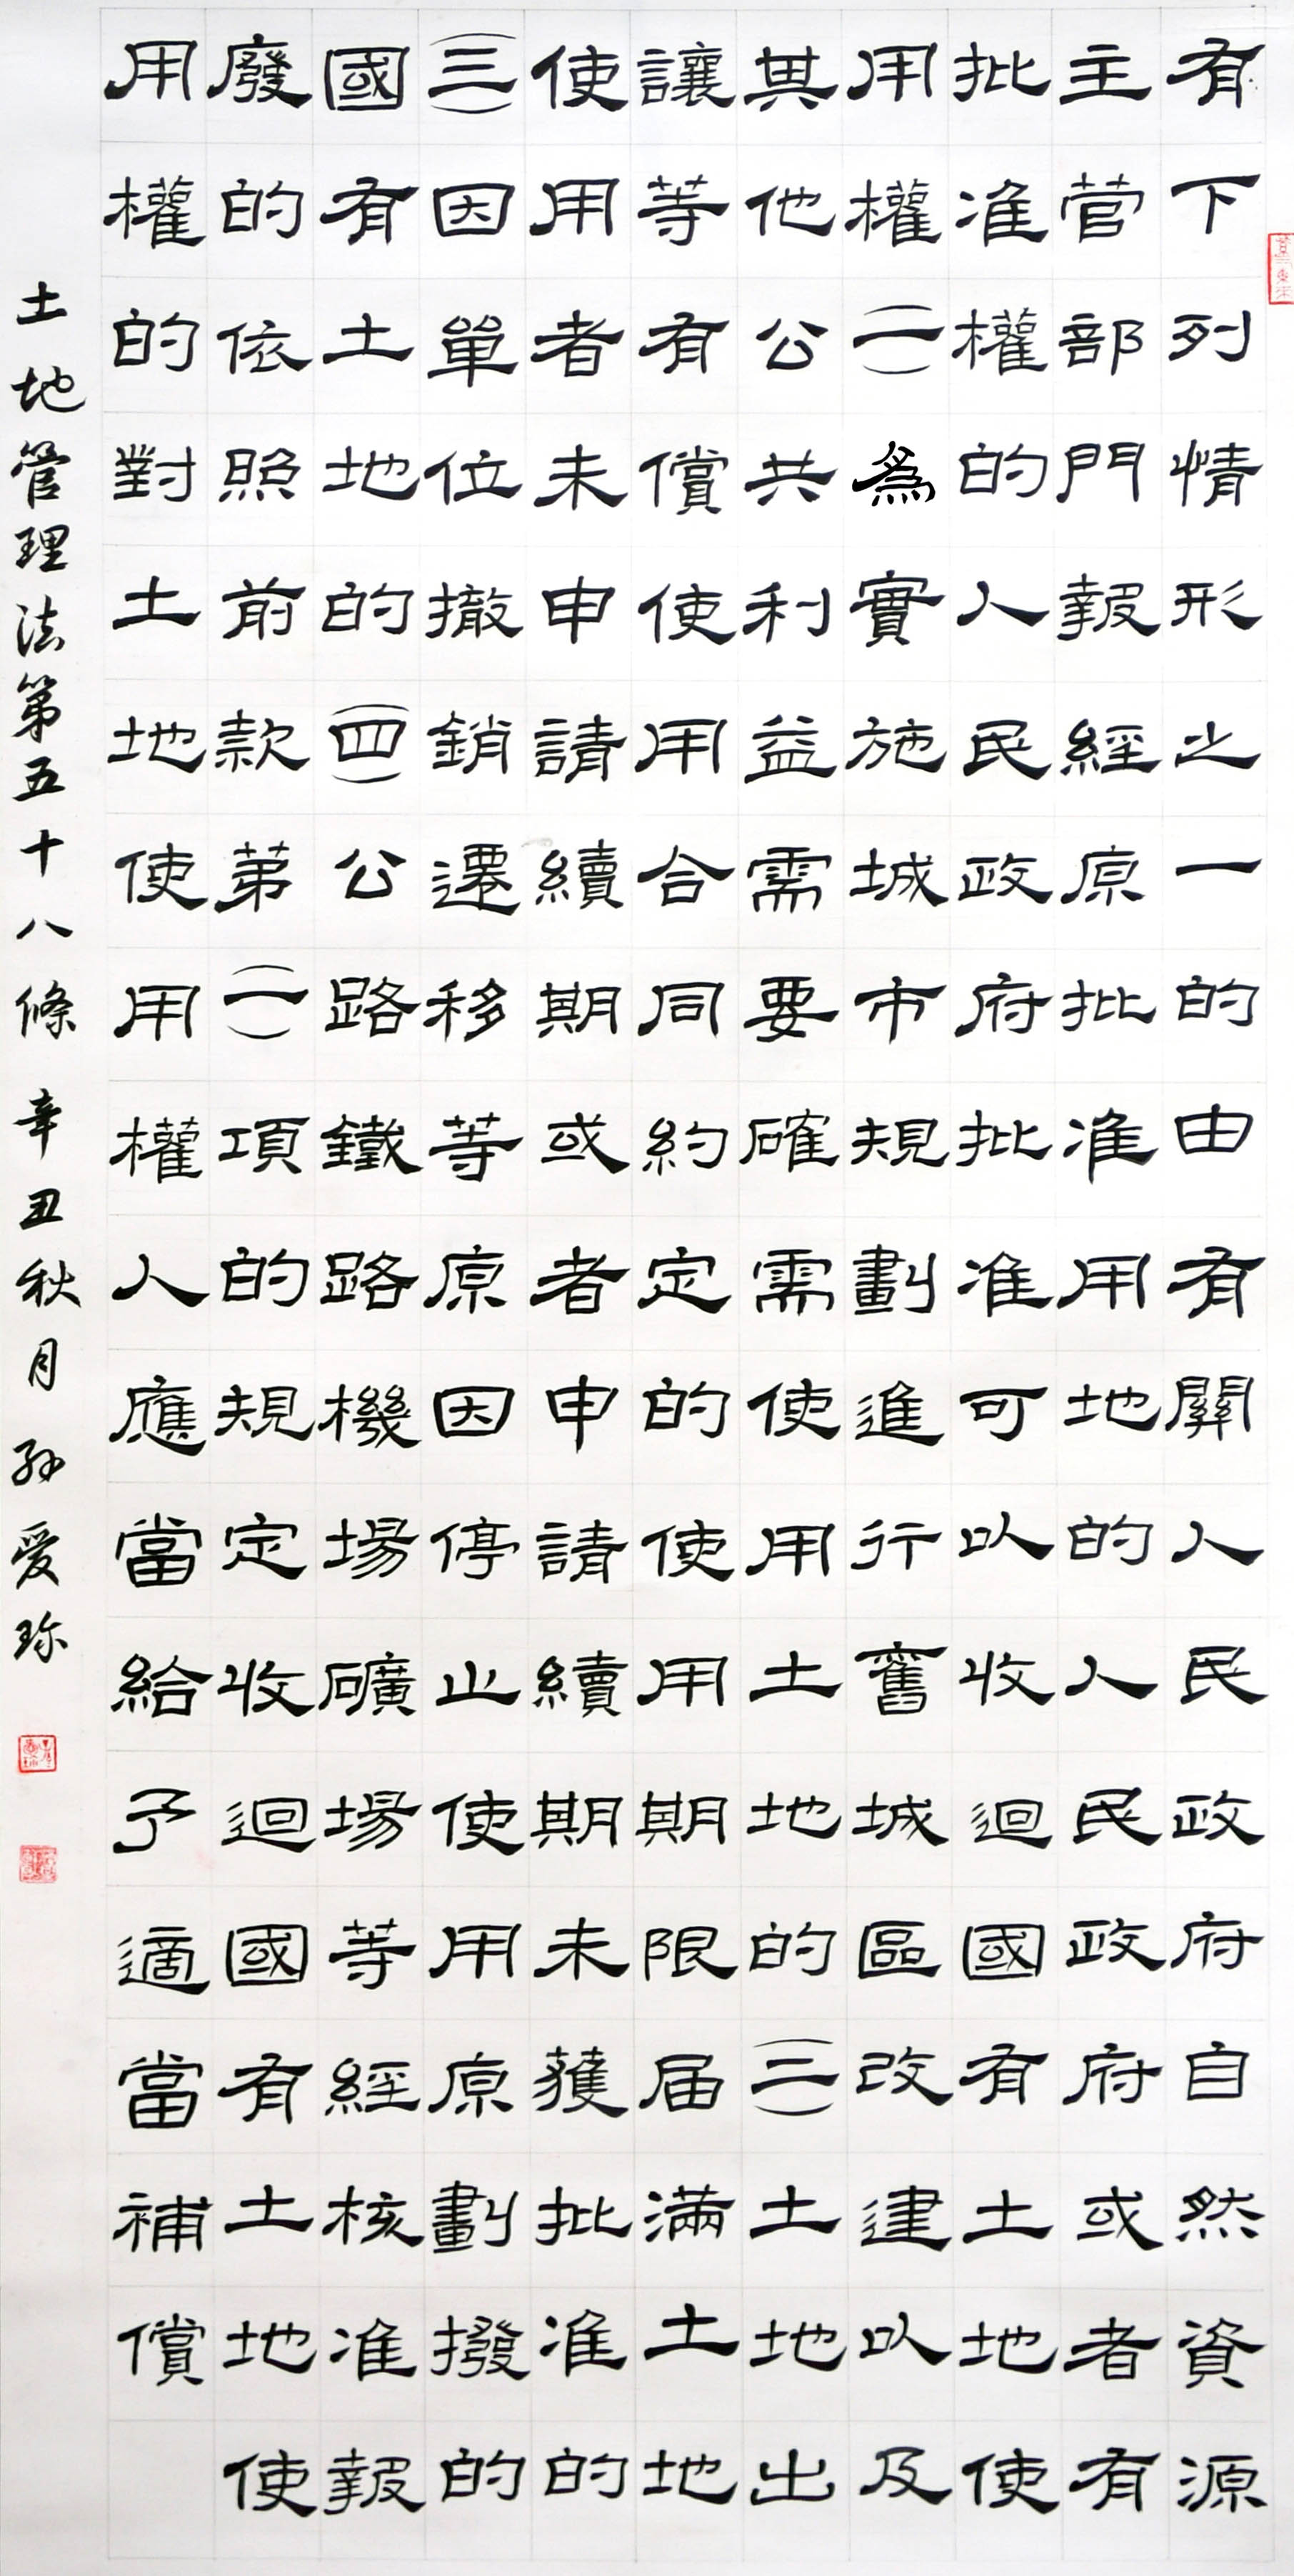 有下列情形之一的由有關人民政府自然資源
主管部門報經原批准用地的人民政府或者有
批准權的人民政府批准可以收迴國有土地使
用權(一)為實施城市規劃進行舊城區改建以及
其他公共利益需要確需使用土地的(二)土地出
讓等有償使用合同約定的使用期限届滿土地
使用者未申請續期或者申請續期未獲批准的
(三)因單位撤銷遷移等原因停止使用原劃撥的
國有土地的(四)公路鐵路機場礦場等經核准報
廢的依照前款第(一)項的規定收迴國有土地使
用權的對土地使用權人應當給予適當補償
土地管理法第五十八條 辛丑秋月 孫爱珎